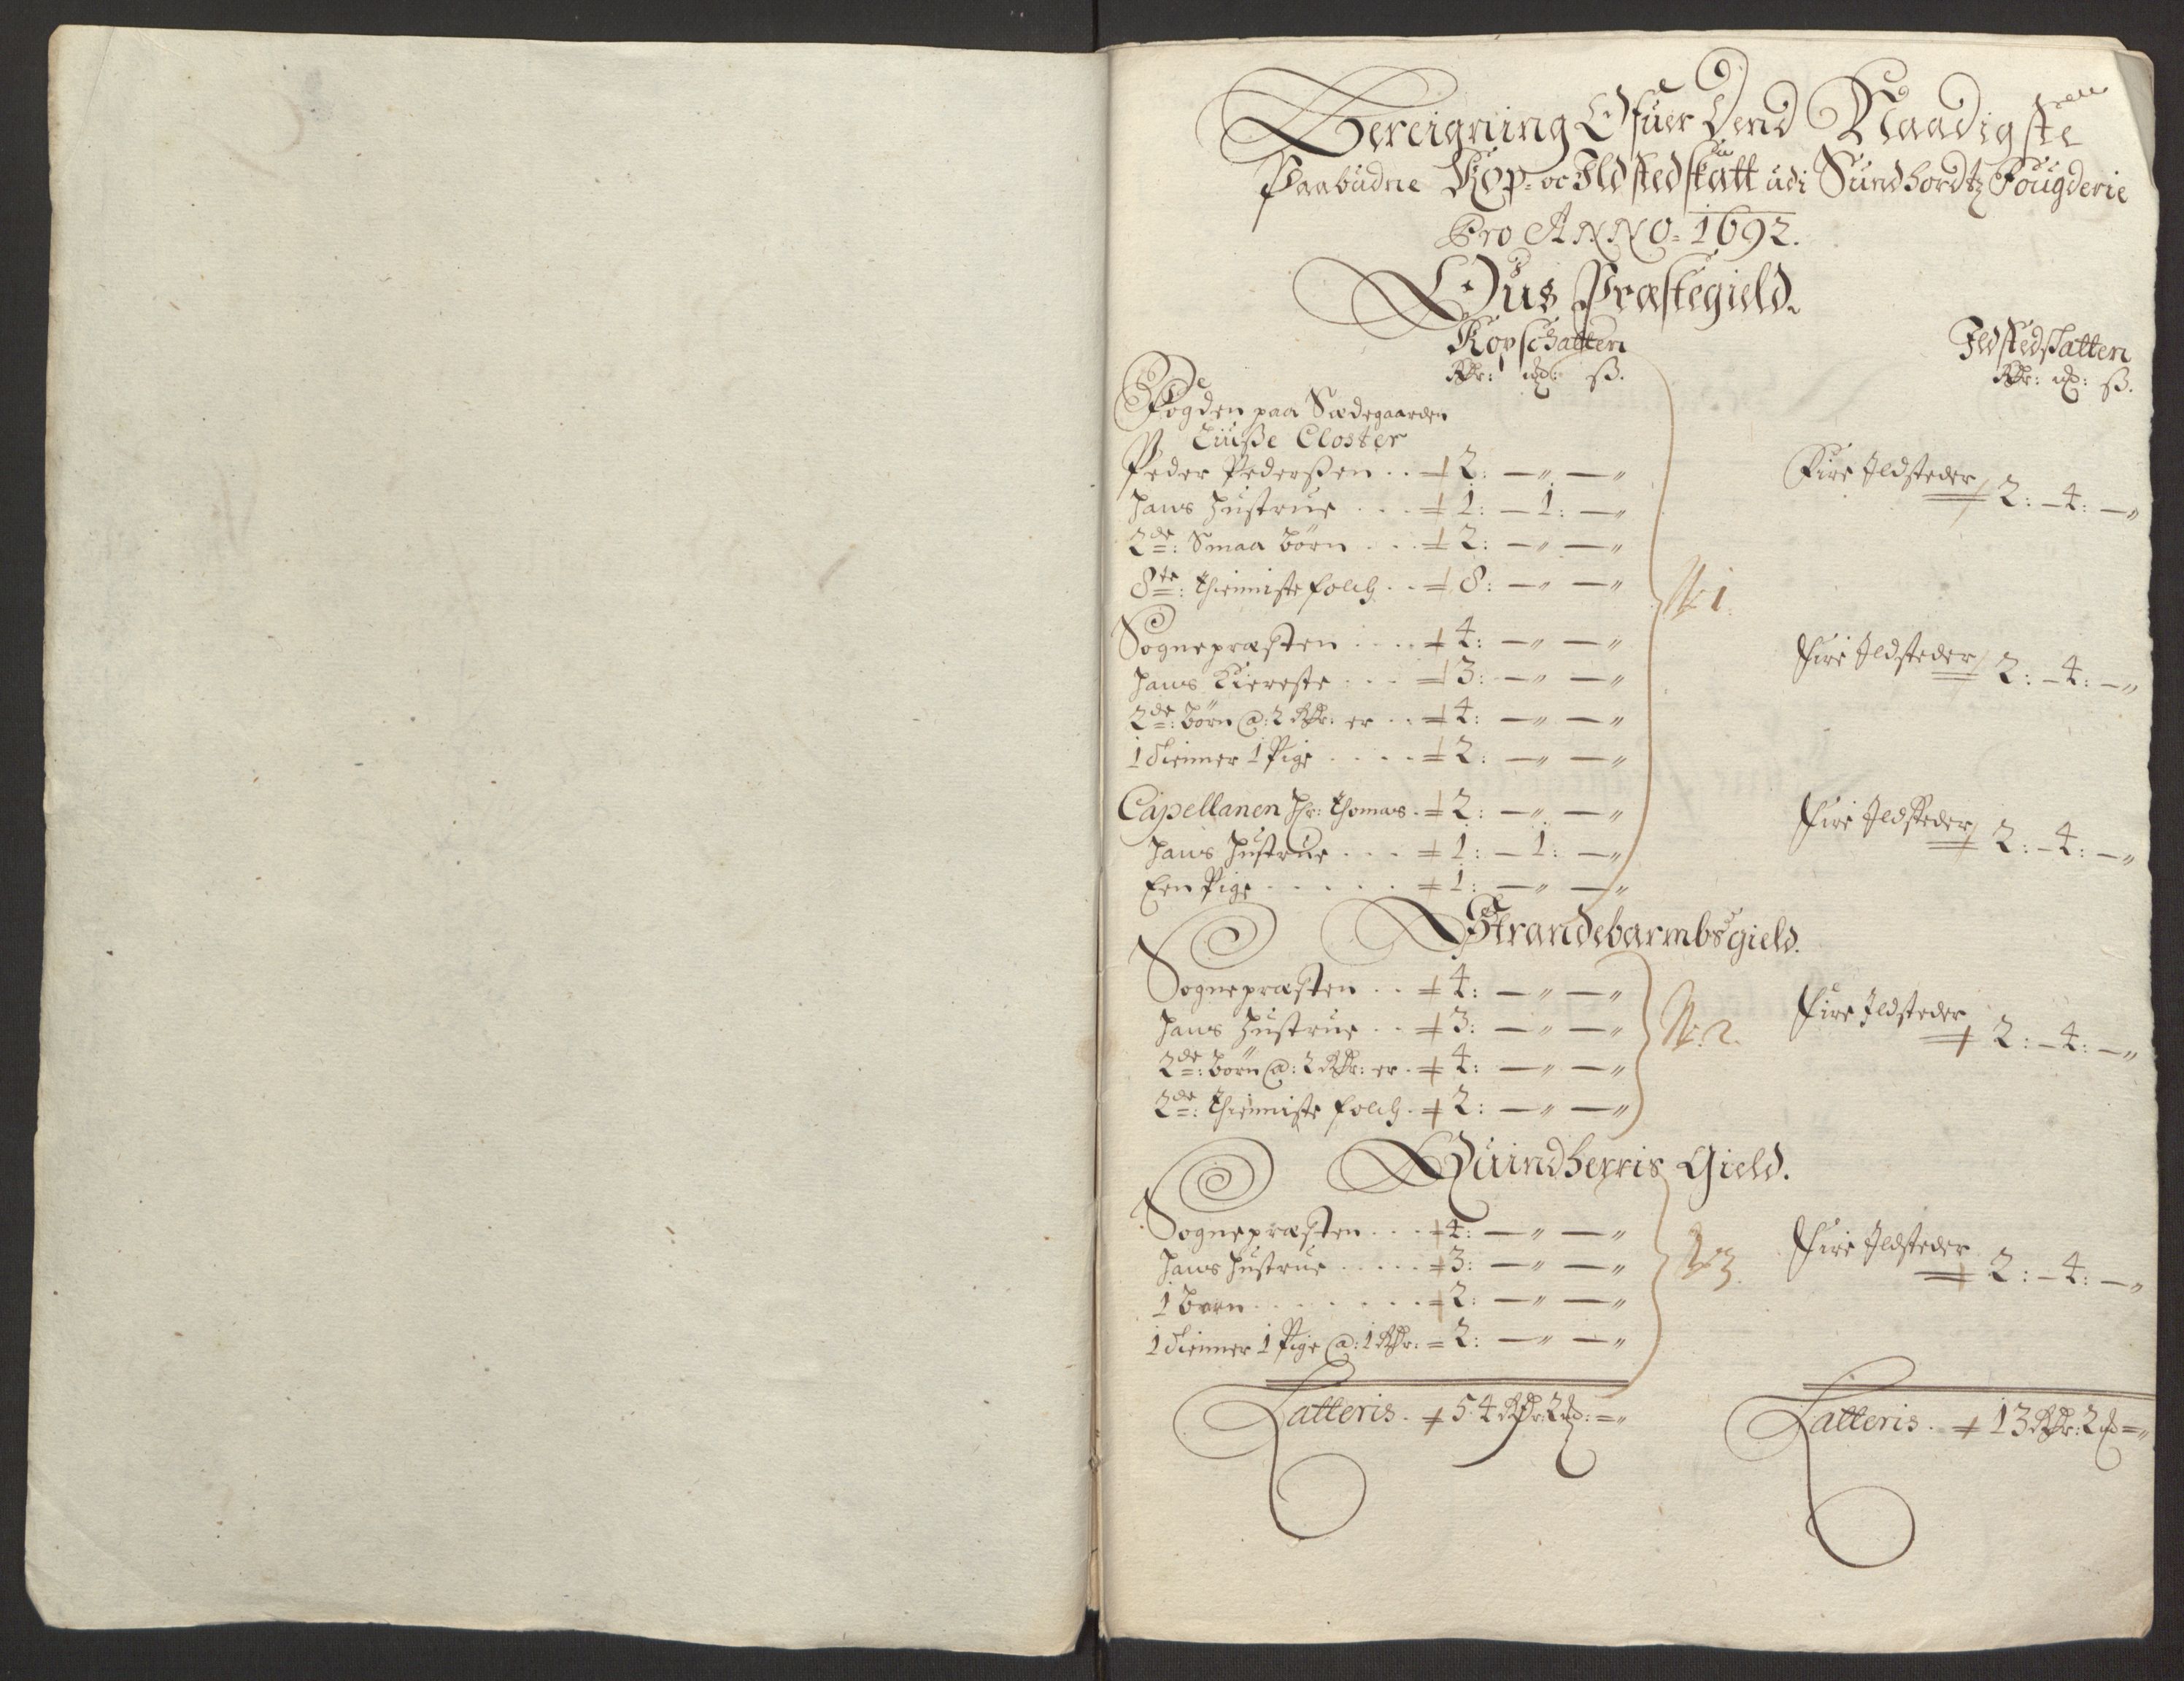 Bereigning Ofuer Dend Naadigste
Paabudne Kop- oc Ildstedskatt udi Sundhordtz Fougderie
Pro ANNO. 1692.
Ous Præstegield.
Kopschatten
Ildstedskatten
Rdr: mk: ß.
Rdr: mk: ß.
Fogden paa Sædegaarden
Liuße Closter
Peder Pederßen .. 2: — " — "
Fire Ildsteder 2: — 4: — "
Hans Hustrue ... 1: — 1: — "
2de: Smaa børn ... 2: — " — "
8te: thienniste folch .. 8: — " — "
No 1.
Sognepræsten .... 4: — " — "
Fire Ildsteder 2: — 4: — "
Hans Kiereste ... 3: — " — "
2de: børn @: 2 Rdr: er .. 4: — " — "
1 dienner 1 Pige .... 2: — " — "
Capellanen Hr: Thomas . 2: — " — "
Fire Ildsteder 2: — 4: — "
Hans Hustrue ... 1: — 1: — "
Een Pige ..... 1: — " — "
Strandebarmbs gield.
Sognepræsten .. 4: — " — "
Fire Ildsteder 2: — 4: — "
Hans Hustrue .. 3: — " — "
No. 2.
2de: børn @: 2 Rdr: er . 4: — " — "
2de: thienniste folch . 2: — " — "
Quindherris Gield.
Sognepræsten ... 4: — " — "
Fire Ildsteder 2: — 4: — "
Hans Hustrue ..... 3: — " — "
No 3.
1 barn ....... 2: — " — "
1 dienner 1 Pige @: 1 Rdr: = 2: — " — "
Latteris . 54 Rdr: 2 mk: = "
Latteris . 13 Rdr: 2 mk = "